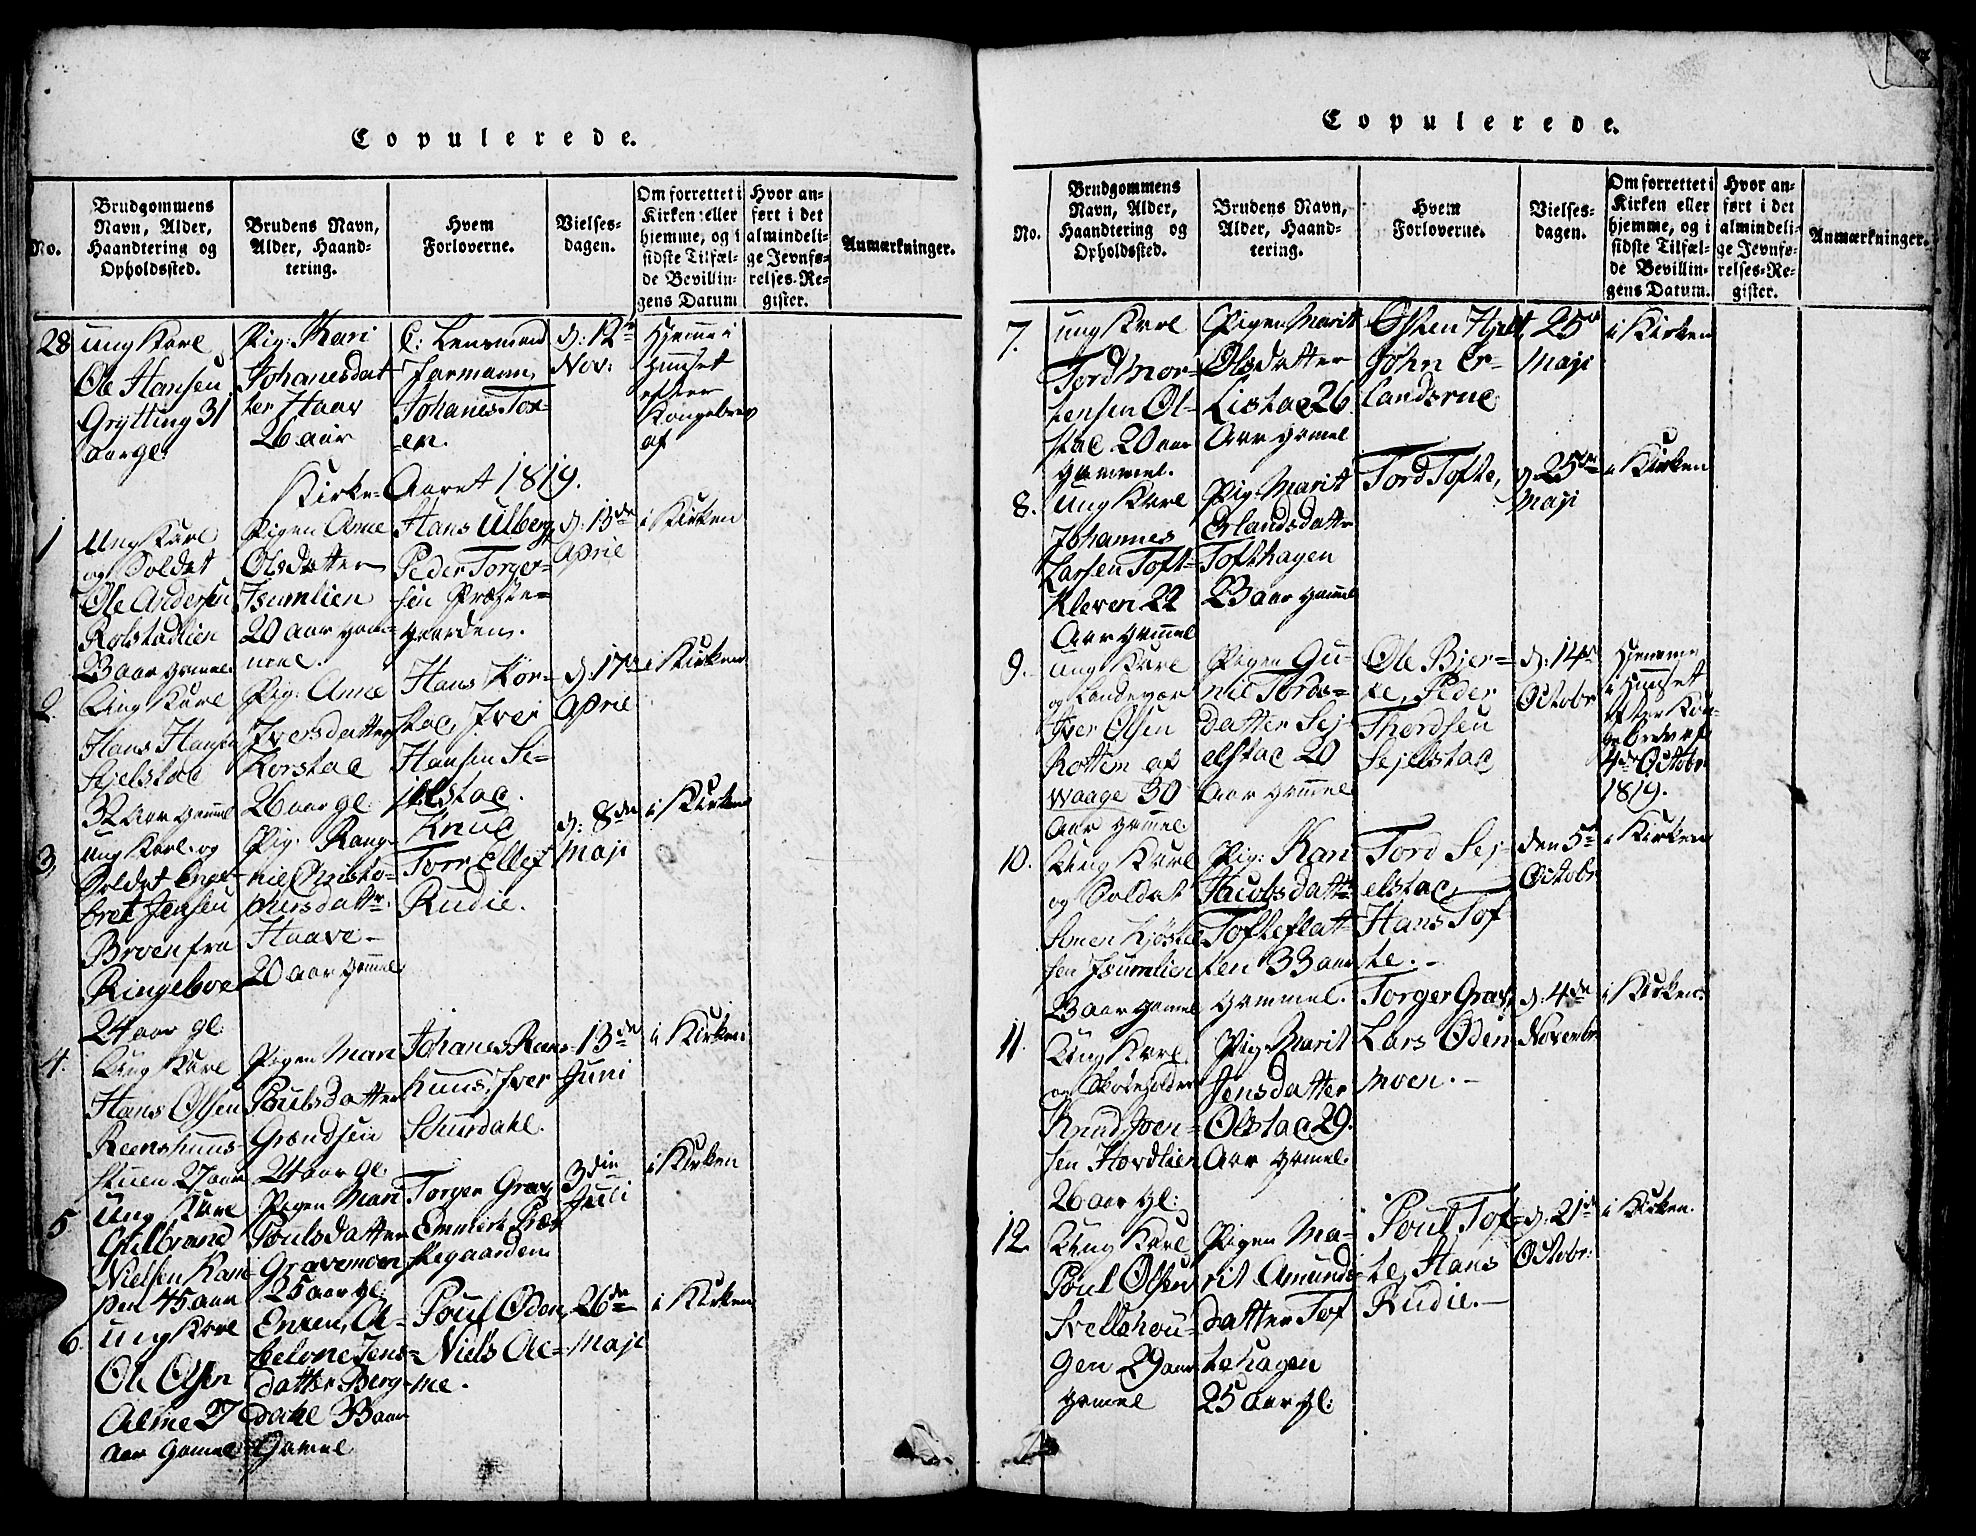 Copulerede.
No.
Brudgommens Navn, Alder, Haandtering og Opholdssted.
Brudens Navn, Alder, Haandtering.
Hvem Forloverne.
Vielsesdagen.
Om forrettet i Kirken eller hjemme, og i sidste Tilfælde Bevillingens Datum.
Hvor anført i det almindelige Jevnførelses-Register.
Anmærkninger.
28
Ung Karl
Ole Hansen
Grytting 31
aar gl.
Pig: Kari
Johanesdat
ter Haav
26 aar
C: Lensmand
Jormann,
Johanes Tor
en.
d: 12te
Nov:
Hjemme i
Huuset
efter
Kongebrev
af
Kirke-Aaret 1819.
1
Ung Karl
og Soldat
Ole Andersen
Rolstadlien
23 aar gamel.
Pigen Anne
Olsdatter
Isumlien
20 aar gam-
mel.
Hans Ulberg,
Peder Torger-
sen Præste-
gaarden.
d: 13de
April
i Kirken
2
Ung Karl
Hans Hansen
Sejelstad
32 Aar gammel
Pig: Anne
Iversdatter
Korstad
26 aar gl:
Hans Kor-
stad, Iver
Hansen Se-
jelstad.
d: 17de
April
i Kirken
3
Ung Karl og
Soldat Engel-
bret Jensen
Broen fra
Ringeboe
24 aar gl:
Pig: Rang-
nil Christo-
phersdattr.
Haave-
20 aar gammel
Knud
Torr Ellef
Rudie.
d: 8de
Maji
i Kirken
4.
Ung Karl
Hans Olsen
Reenshuus-
stuen 27 aar
Pigen Mari
Poulsdatter
Grandsen
24 aar gl:
Johanes Reens-
huus, Iver
Schurdahl.
13de
Juni
i Kirken.
5
Ung Karl
Gulbrand
Nielsen Kam-
pen 45 aar
Pigen Mari
Poulsdatter
Gravemoen
25 aar gl:
Torger Grav,
Emmerk Præ-
stegaarden
3die
Juli
i Kirken
6.
Ung Karl
Ole Olsen
Alme 27
aar Gamel
Enken, A-
belone Jens-
datter Berg-
dahl 33 aar
Gamel
Poul Oden,
Niels Al-
me.
26de
Maji
i Kirken
Copulerede.
No.
Brudgommens Navn, Alder, Haandtering og Opholdssted.
Brudens Navn, Alder, Haandtering.
Hvem Forloverne.
Vielsesdagen.
Om forrettet i Kirken eller hjemme, og i sidste Tilfælde Bevillingens Datum.
Hvor anført i det almindelige Jevnførelses-Register.
Anmærkninger.
7.
Ung Karl
Tord Mor-
tensen Ol-
stad 20 aar
gammel.
Pigen Marit
Olsdatter
Listad 26
Aar gamel
Østen Hjelt,
John Er-
landsrud
25de
Maji
i Kirken
8.
Ung Karl
Johannes
Larsen Toft-
Kleven 22
Aar gammel
Pig: Marit
Erlandsdatter
Tofthagen
23 aar gammel
Tord Tofte,
d: 25de
Maji
i Kirken
9.
Ung Karl
og Landevær
Iver Olsen
Rottem af
Waage 30
Aar gammel.
Pigen Gu-
nil Tords-
datter Sej-
elstad 20
Aar gammel
Ole Bjer-
ke, Peder
Thordsen
Sejelstad
d: 14de
Octobr
Hjemme
i Huuset
efter Kon-
gebrev af
4de Octobr
1819.
10.
Ung Karl
og Soldat
Simen Kjøstel
sen Isumlien
23 aar gamel
Pig: Kari
Jacobsdattr
Tofteflat-
ten 33 aar
gammel.
Tord Sej-
elstad,
Hans Tof
te.-
den 5te
Octobr
i Kirken
11.
Ung Karl
og Skoeholder
Knud Joen-
sen Hordlien
26 aar gl:
Pig: Marit
Jensdatter
Olstad 29.
Aar gamel.
Torger Grav,
Lars Oden
moen.-
d: 4de
Novembr.
i Kirken.
12.
Ung Karl
Poul Olsen
Svellehou-
gen 29 aar
gamel
Pigen Ma-
rit Amunds
datter Tof
tehagen
25 aar gl:
Poul Tof-
te, Hans
Rudie.-
d: 21de
Octobr:
i Kirken.